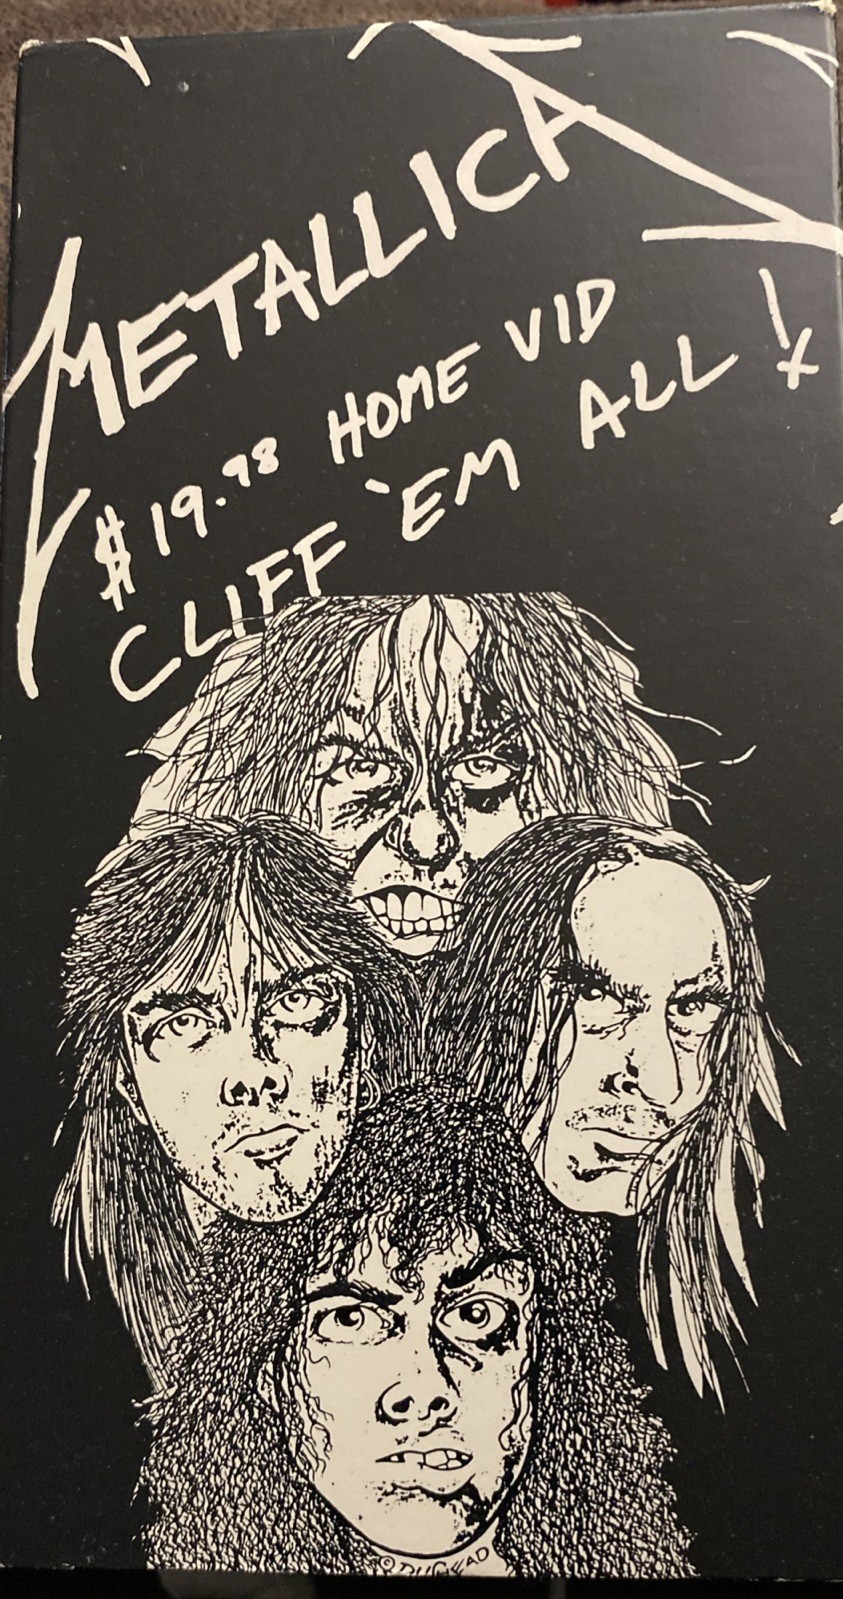 METALLICA
$19.98 HOME VID
CLIFF 'EM ALL!
© PUSHEAD